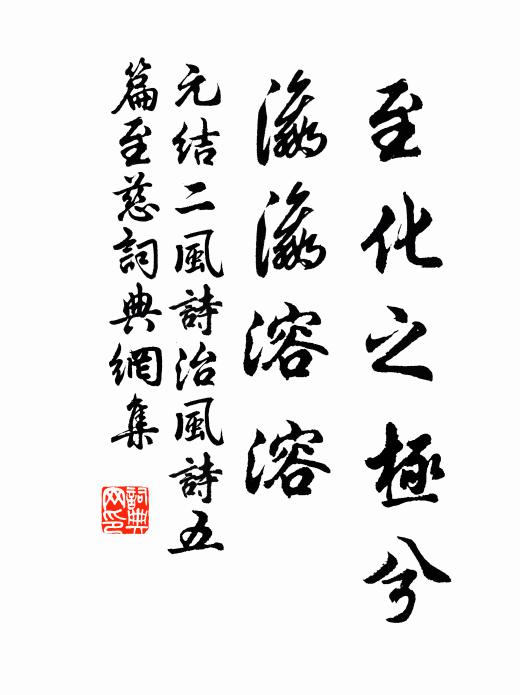 至化之極兮
瀛瀛溶溶
元結二風詩治風詩五
篇至慈詞典網集
詞典
网印